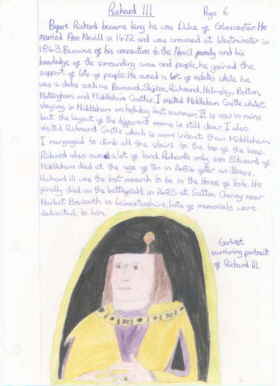 Richard III Page 6
Before Richard became king he was Duke of Gloucester. He
married Ann Nevill in 1472 and was crowned at Westminster in
1483. Because of his connection to the Nevill family and his
knowledge of the surrounding area and people, he gained the
support of lots of people. He owned a lot of estates while he
was a duke such as Barnard, Skipton, Richmond, Helmsley, Bolton,
Nottingham, and Middleham Castles. I visited Middleham Castle whilst
staying in Middleham on holiday last summer. It is now in ruins
but the layout of the different rooms is still clear. I also
visited Richmond Castle which is more intact than Middleham.
I managed to climb all the stairs to the top of the keep.
Richard also owned lots of land. Richards only son Edward of
Middleham died at the age of ten in
Richard III was the last monarch to be in the House of York. He
finally died on the battlefield in 1485 at Sutton Cheney near
Market Bosworth in Leicestershire, lots of memorials were
dedicated to him.
Earliest
surviving portrait
of Richard III.